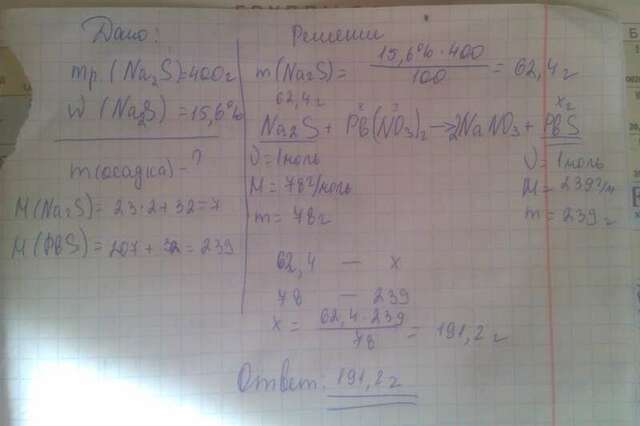 Дано:
mр. (Na₂S)=400г
w (Na₂S) = 15,6%
m(осадка) - ?
M(Na₂S) = 23·2+32=7
M(PbS) = 207 + 32 = 239
Решение
m(Na₂S) = 15,6%·400 / 100 = 62,4г
62,4г x г
Na₂S + Pb(NO₃)₂ → 2NaNO₃ + PbS
ν = 1моль ν = 1моль
M = 78г/моль M = 239г/м
m = 78г m = 239г
62,4 — x
78 — 239
x = 62,4·239 / 78 = 191,2г
Ответ: 191,2г